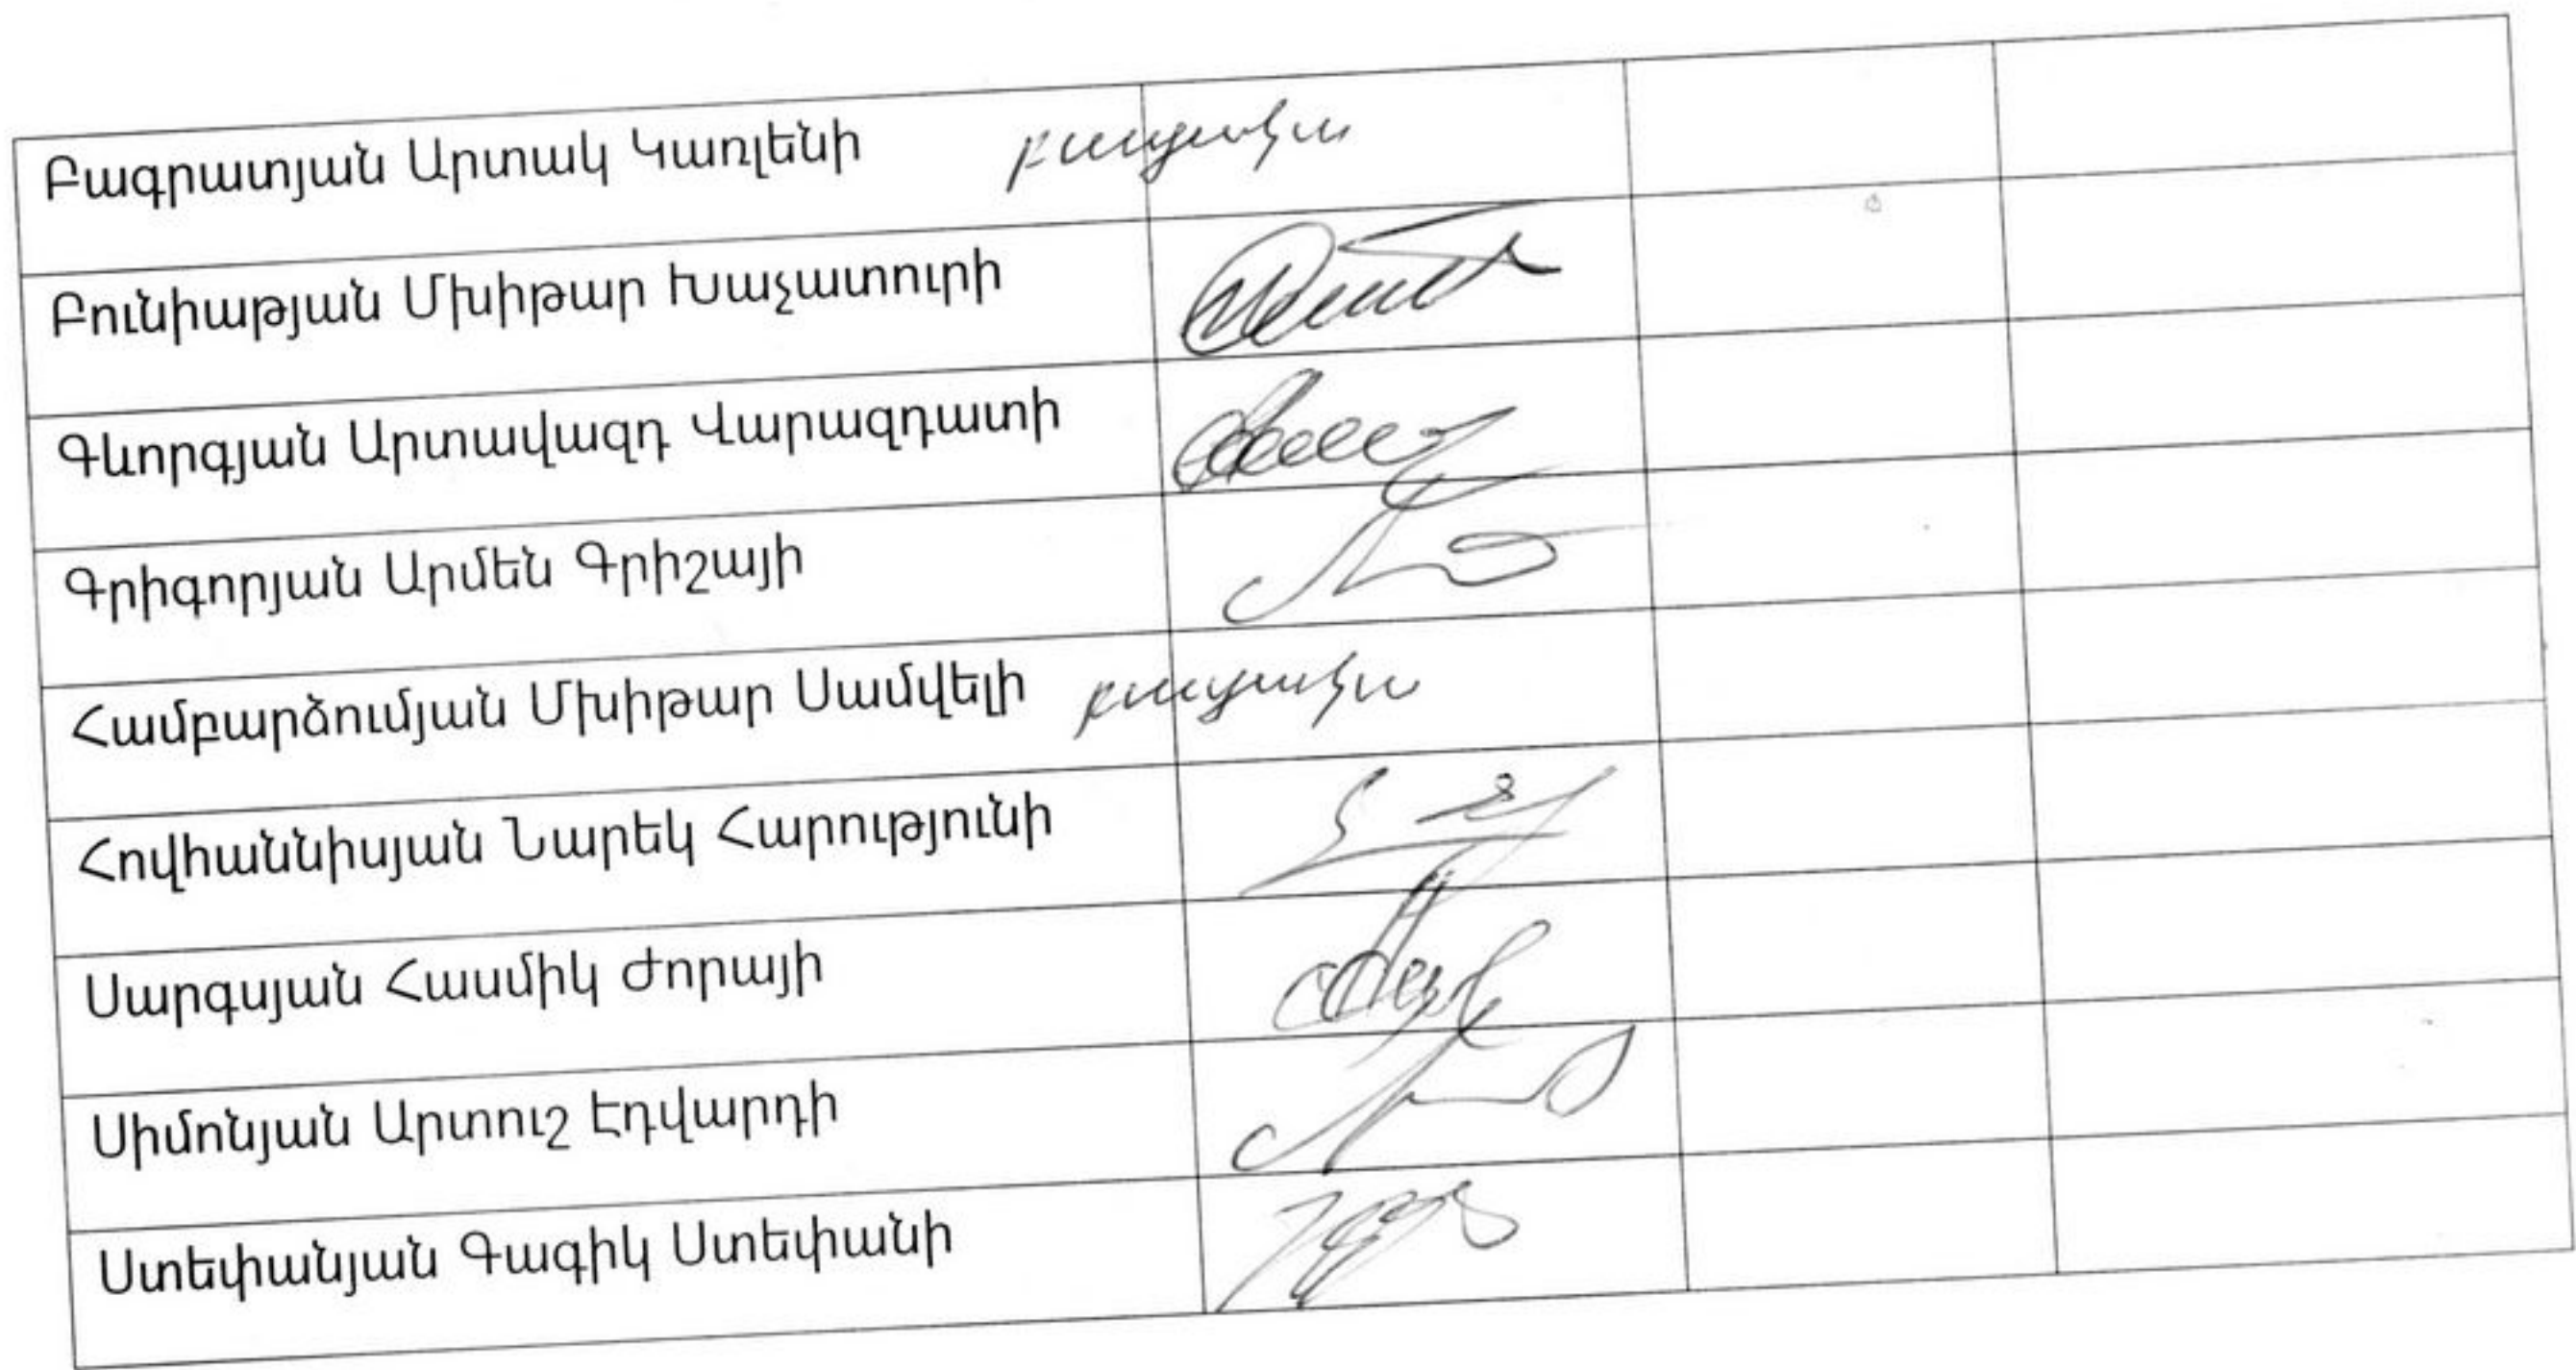 Բագրատյան Արտակ Կառլենի բացակա
Բունիաթյան Մխիթար Խաչատուրի
Գևորգյան Արտավազդ Վարազդատի
Գրիգորյան Արմեն Գրիշայի
Համբարձումյան Մխիթար Սամվելի բացակա
Հովհաննիսյան Նարեկ Հարությունի
Սարգսյան Հասմիկ Ժորայի
Սիմոնյան Արտուշ Էդվարդի
Ստեփանյան Գագիկ Ստեփանի